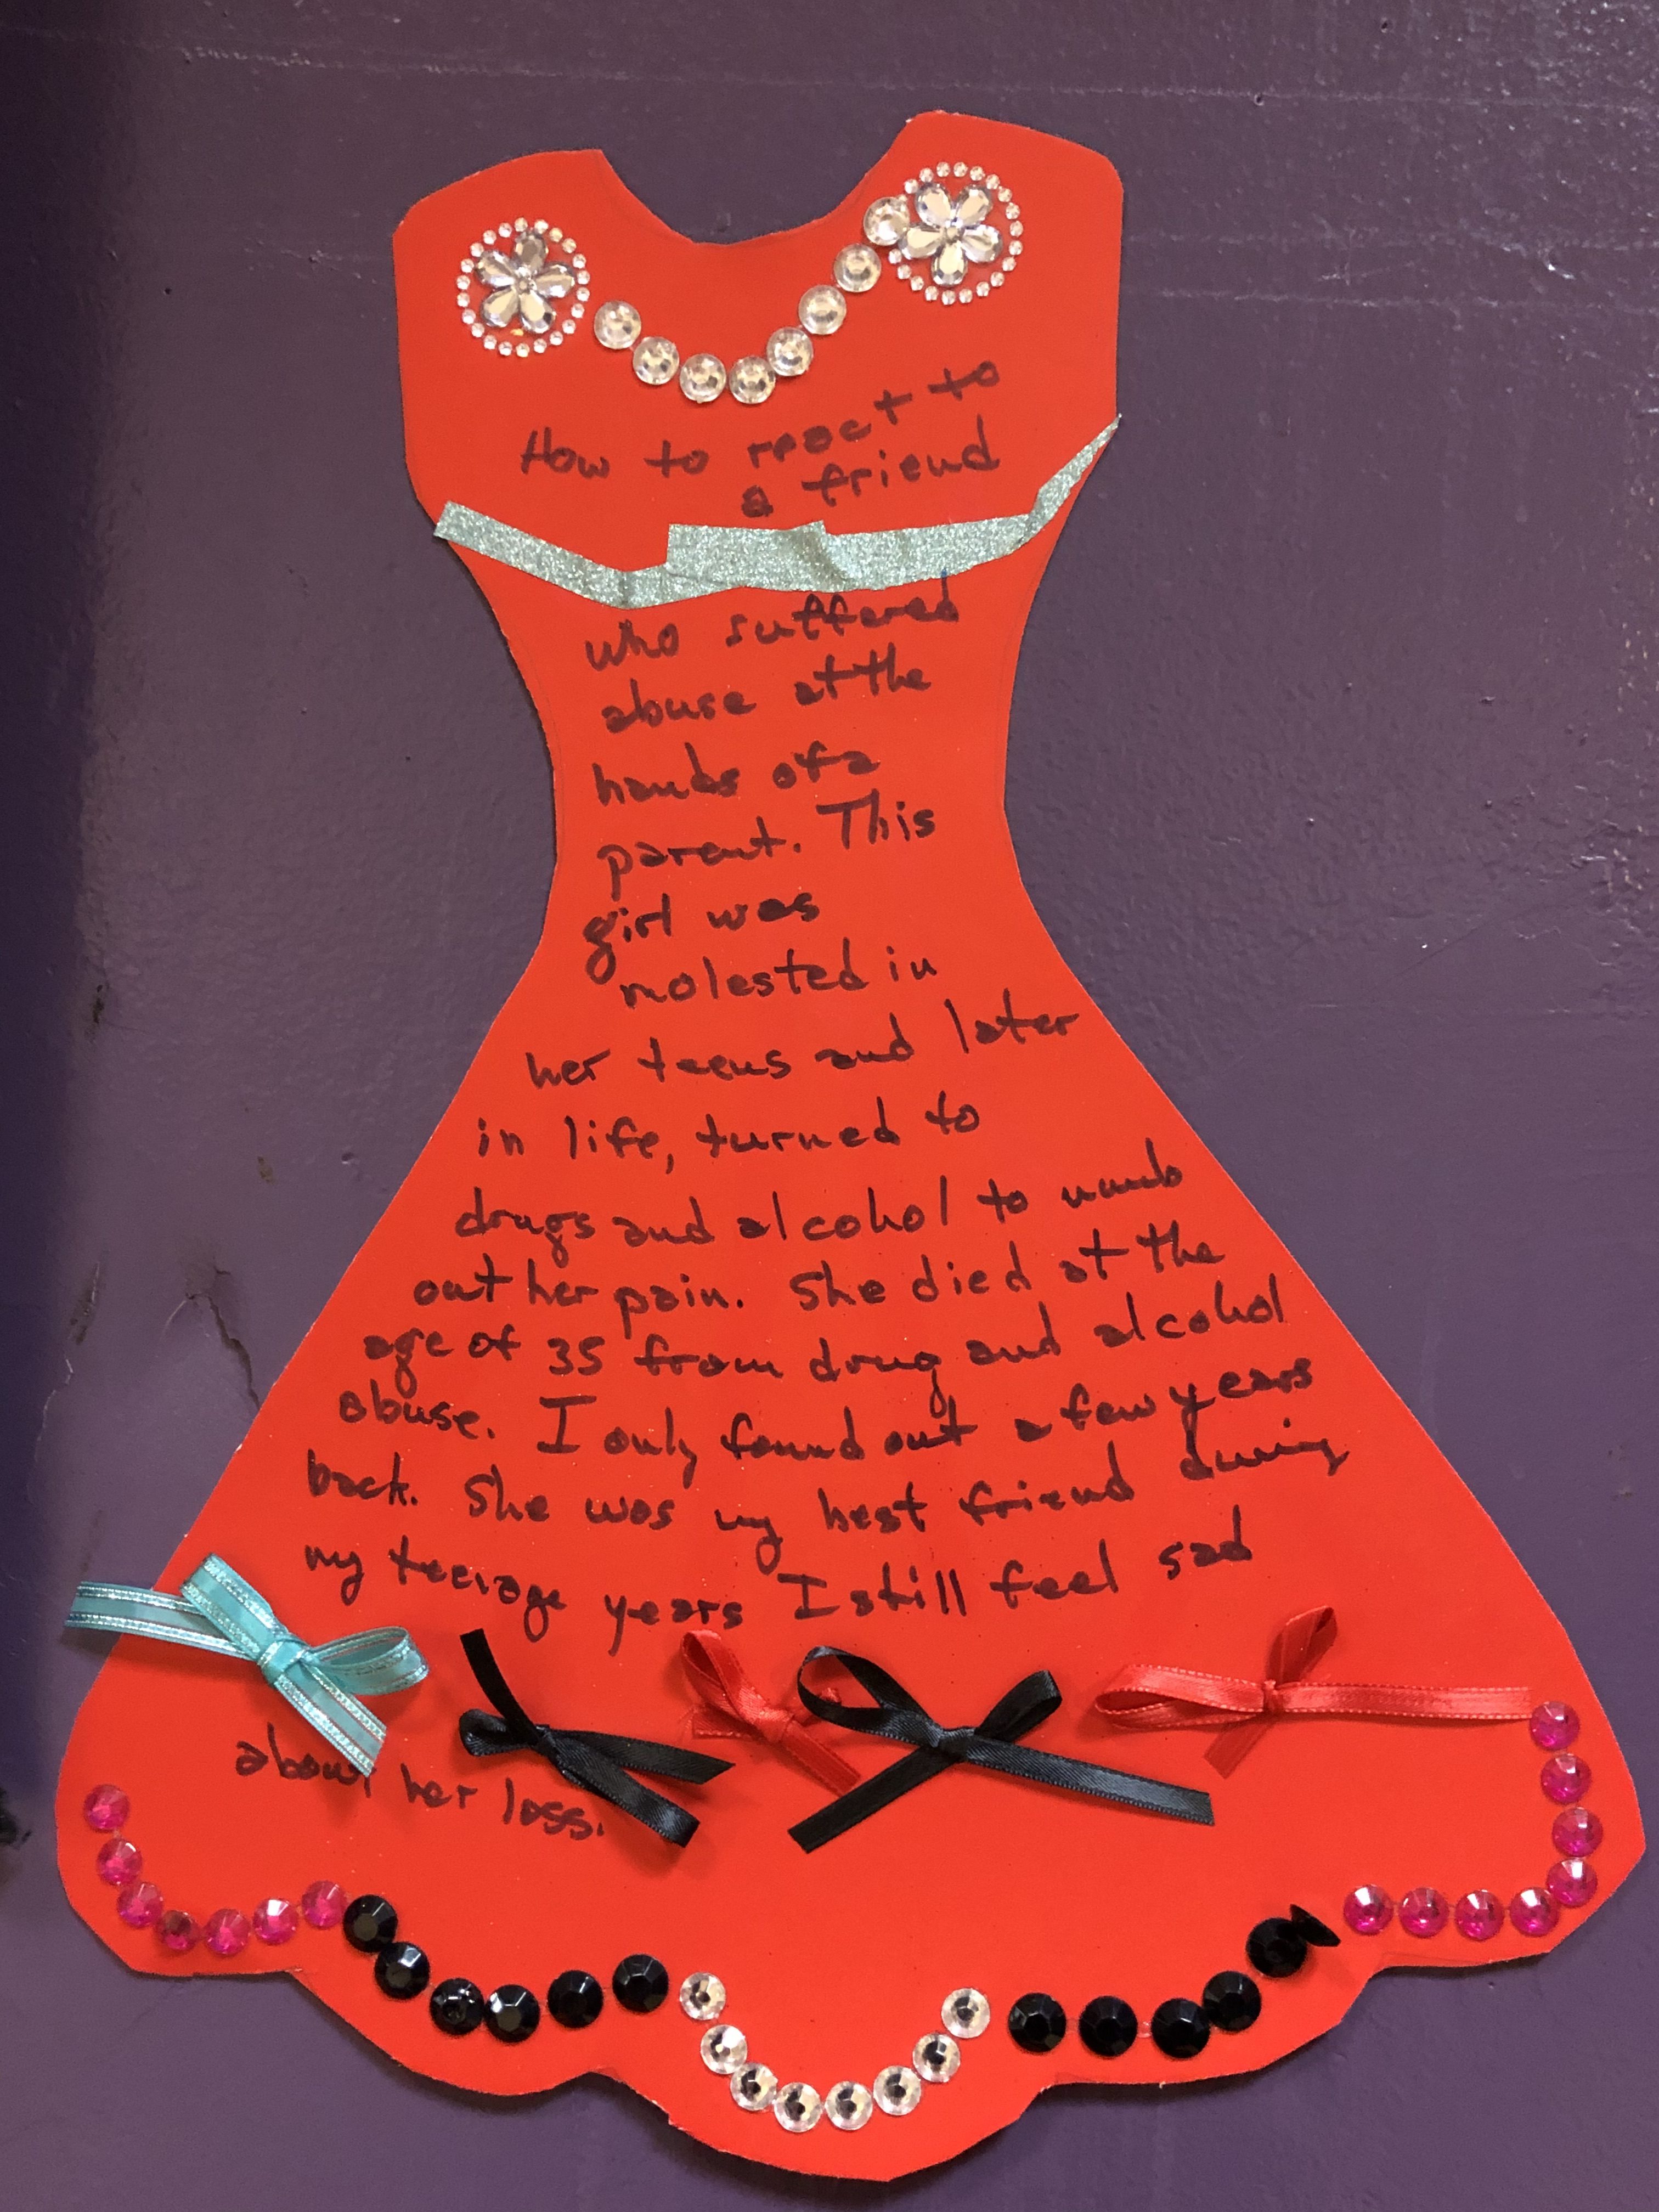 How to react to
a friend
who suffered
abuse at the
hands of a
parent. This
girl was
molested in
her teens and later
in life, turned to
drugs and alcohol to numb
out her pain. She died at the
age of 35 from drug and alcohol
abuse. I only found out a few years
back. She was my best friend during
my teenage years I still feel sad
about her loss.